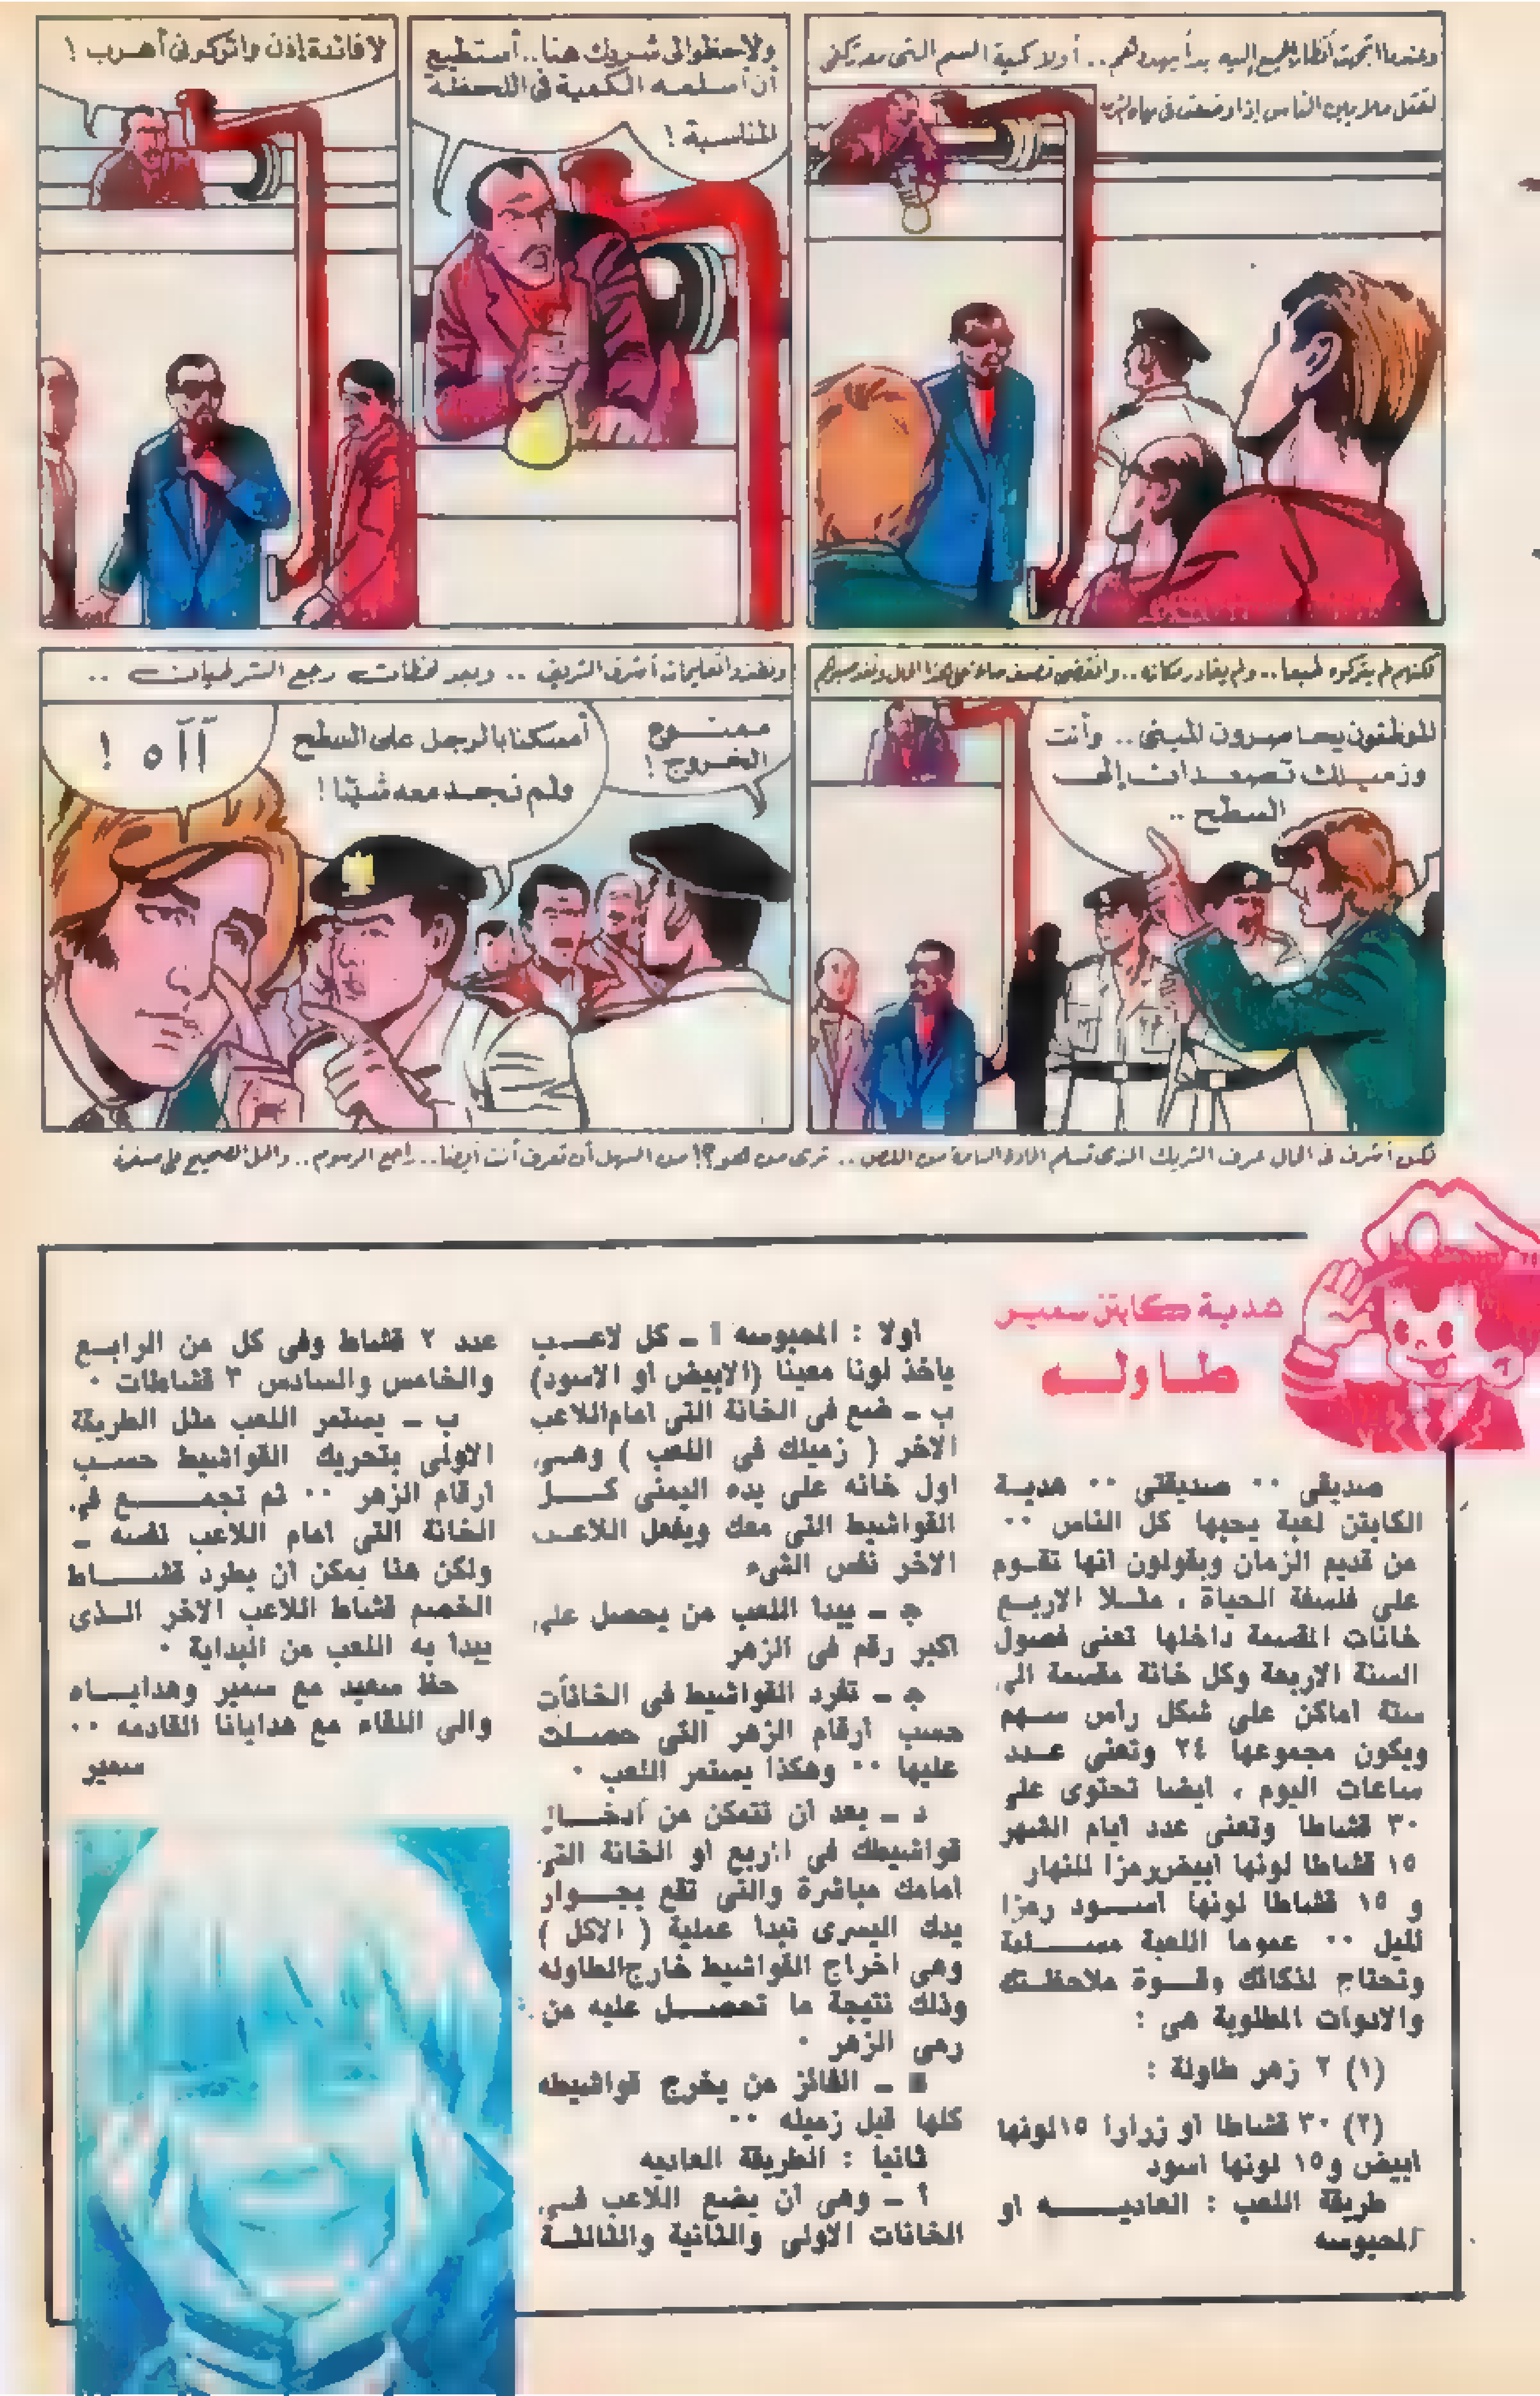 وعندما اتجهت أنظار الجميع إليه بدأ يهددهم .. أولا كمية السم التى معى تكفى
لقتل ملايين الناس إذا وضعت فى مياه الشرب
ولاحظوا لى شريك هنا .. أستطيع
أن أسلمه الكمية فى اللحظة
المناسبة !
لا فائدة إذن واتركونى أهرب !
لكنهم لم يتركوه طبعا .. ولم يغادر مكانه .. وانقضى نصف ساعة على هذا الحال ونفد صبرهم
الموظفون يحاصرون المبنى .. وأنت
وزميلك تصعدان إلى
السطح ..
ونفذوا تعليمات أشرف الشريف .. وبعد لحظات رجع الشرطيان ..
ممنوع
الخروج !
أمسكنا بالرجل على السطح
ولم نجد معه شيئا !
آآه !
لكن أشرف فى الحال عرف الشريك الذى تسلم المادة السامة من اللص .. ترى من هو ؟! من السهل أن تعرف أنت أيضا .. راجع الرسوم .. والحل الصحيح على صفحة
هدية كابتن سمير
طاوله
صديقى ٠٠ صديقتى ٠٠ هدية
الكابتن لعبة يحبها كل الناس ٠٠
من قديم الزمان ويقولون انها تقوم
على فلسفة الحياة ، مثلا الاربع
خانات المقسمة داخلها تعنى فصول
السنة الاربعة وكل خانة مقسمة الى
ستة اماكن على شكل رأس سهم
ويكون مجموعها ٢٤ وتعنى عدد
ساعات اليوم ، ايضا تحتوى على
٣٠ قشاطا وتعنى عدد ايام الشهر
١٥ قشاطا لونها ابيض رمزا للنهار
و ١٥ قشاطا لونها اسود رمزا
لليل ٠٠ عموما اللعبة مسلية
وتحتاج لذكائك وقوة ملاحظتك
والادوات المطلوبة هى :
(١) ٢ زهر طاولة :
(٢) ٣٠ قشاطا او زرارا ١٥ لونها
ابيض و١٥ لونها اسود
طريقة اللعب : العاديه او
المحبوسه
أولا : المحبوسه أ ـ كل لاعب
ياخذ لونا معينا (الابيض او الاسود)
ب ـ ضع فى الخانة التى امام اللاعب
الاخر ( زميلك فى اللعب ) وهى
اول خانه على يده اليمنى كل
القواشيط التى معك ويفعل اللاعب
الاخر نفس الشىء
ج ـ يبدا اللعب من يحصل على
اكبر رقم فى الزهر
ج ـ تفرد القواشيط فى الخانات
حسب أرقام الزهر التى حصلت
عليها ٠٠ وهكذا يستمر اللعب ٠
د ـ بعد أن تتمكن من أدخال
قواشيطك فى الربع او الخانة التى
امامك مباشرة والتى تقع بجوار
يدك اليسرى تبدا عملية ( الاكل )
وهى اخراج القواشيط خارج الطاوله
وذلك نتيجة ما تحصل عليه من
رمى الزهر ٠
ـ الفائز من يخرج قواشيطه
كلها قبل زميله ٠٠
ثانيا : الطريقة العاديه
أ ـ وهى أن يضع اللاعب فى
الخانات الاولى والثانية والثالثة
عدد ٢ قشاط وفى كل من الرابع
والخامس والسادس ٣ قشاطات ٠
ب ـ يستمر اللعب مثل الطريقة
الاولى بتحريك القواشيط حسب
أرقام الزهر ٠٠ ثم تجمع فى
الخانة التى امام اللاعب نفسه ـ
ولكن هنا يمكن أن يطرد قشاط
الخصم قشاط اللاعب الاخر الذى
يبدأ به اللعب من البداية ٠
حظ سعيد مع سمير وهداياه
والى اللقاء مع هدايانا القادمه ٠٠
سمير